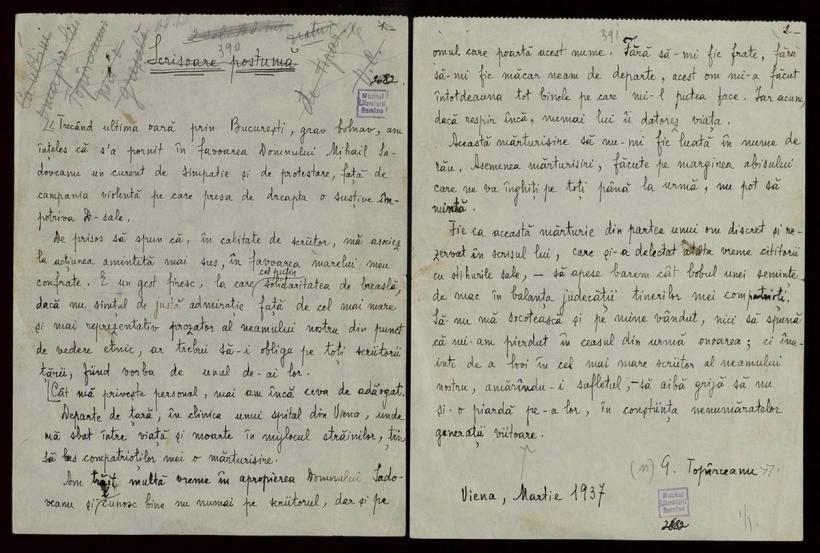 390
1-
Scrisoare postumă
2682.
Muzeul
Literaturii
Române
Trecând ultima oară prin București, grav bolnav, am
înțeles că s'a pornit în favoarea Domnului Mihail Sa-
doveanu un curent de simpatie și de protestare, față de
campania violentă pe care presa de dreapta o susține îm-
potriva D-sale.
De prisos să spun că, în calitate de scriitor, mă asociez
la acțiunea amintită mai sus, în favoarea marelui meu
confrate. E un gest firesc, la care cel puțin solidaritatea de breaslă,
dacă nu simțul de justă admirație față de cel mai mare
și mai reprezentativ prozator al neamului nostru din punct
de vedere etnic, ar trebui să-i oblige pe toți scriitorii
țării, fiind vorba de unul de-ai lor.
Cât mă privește personal, mai am încă ceva de adăogat.
Departe de țară, în clinica unui spital din Viena, unde
mă zbat între viață și moarte în mijlocul străinilor, țin
să las compatrioților mei o mărturisire.
Am trăit multă vreme în apropierea Domnului Sado-
veanu și cunosc bine nu numai pe scriitorul, dar și pe
391
2.-
omul care poartă acest nume. Fără să-mi fie frate, fără
să-mi fie măcar neam de departe, acest om mi-a făcut
întotdeauna tot binele pe care mi-l putea face. Iar acum,
dacă respir încă, numai lui îi datorez viața.
Această mărturisire să nu-mi fie luată în nume de
rău. Asemenea mărturisiri, făcute pe marginea abisului
care ne va înghiți pe toți până la urmă, nu pot să
mintă.
Fie ca această mărturie din partea unui om discret și re-
zervat în scrisul lui, care și-a delectat atâta vreme cititorii
cu stihurile sale, – să apese barem cât bobul unei semințe
de mac în balanța judecății tinerilor mei compatrioți.
Să nu mă socotească și pe mine vândut, nici să spună
că mi-am pierdut în ceasul din urmă onoarea; ci îna-
inte de a lovi în cel mai mare scriitor al neamului
nostru, amărîndu-i sufletul, – să aibă grijă să nu
și-o piardă pe-a lor, în conștiința nenumăratelor
generații viitoare.
(ss) G. Topîrceanu
Viena, Martie 1937
Muzeul
Literaturii
Române
2682
1/1.